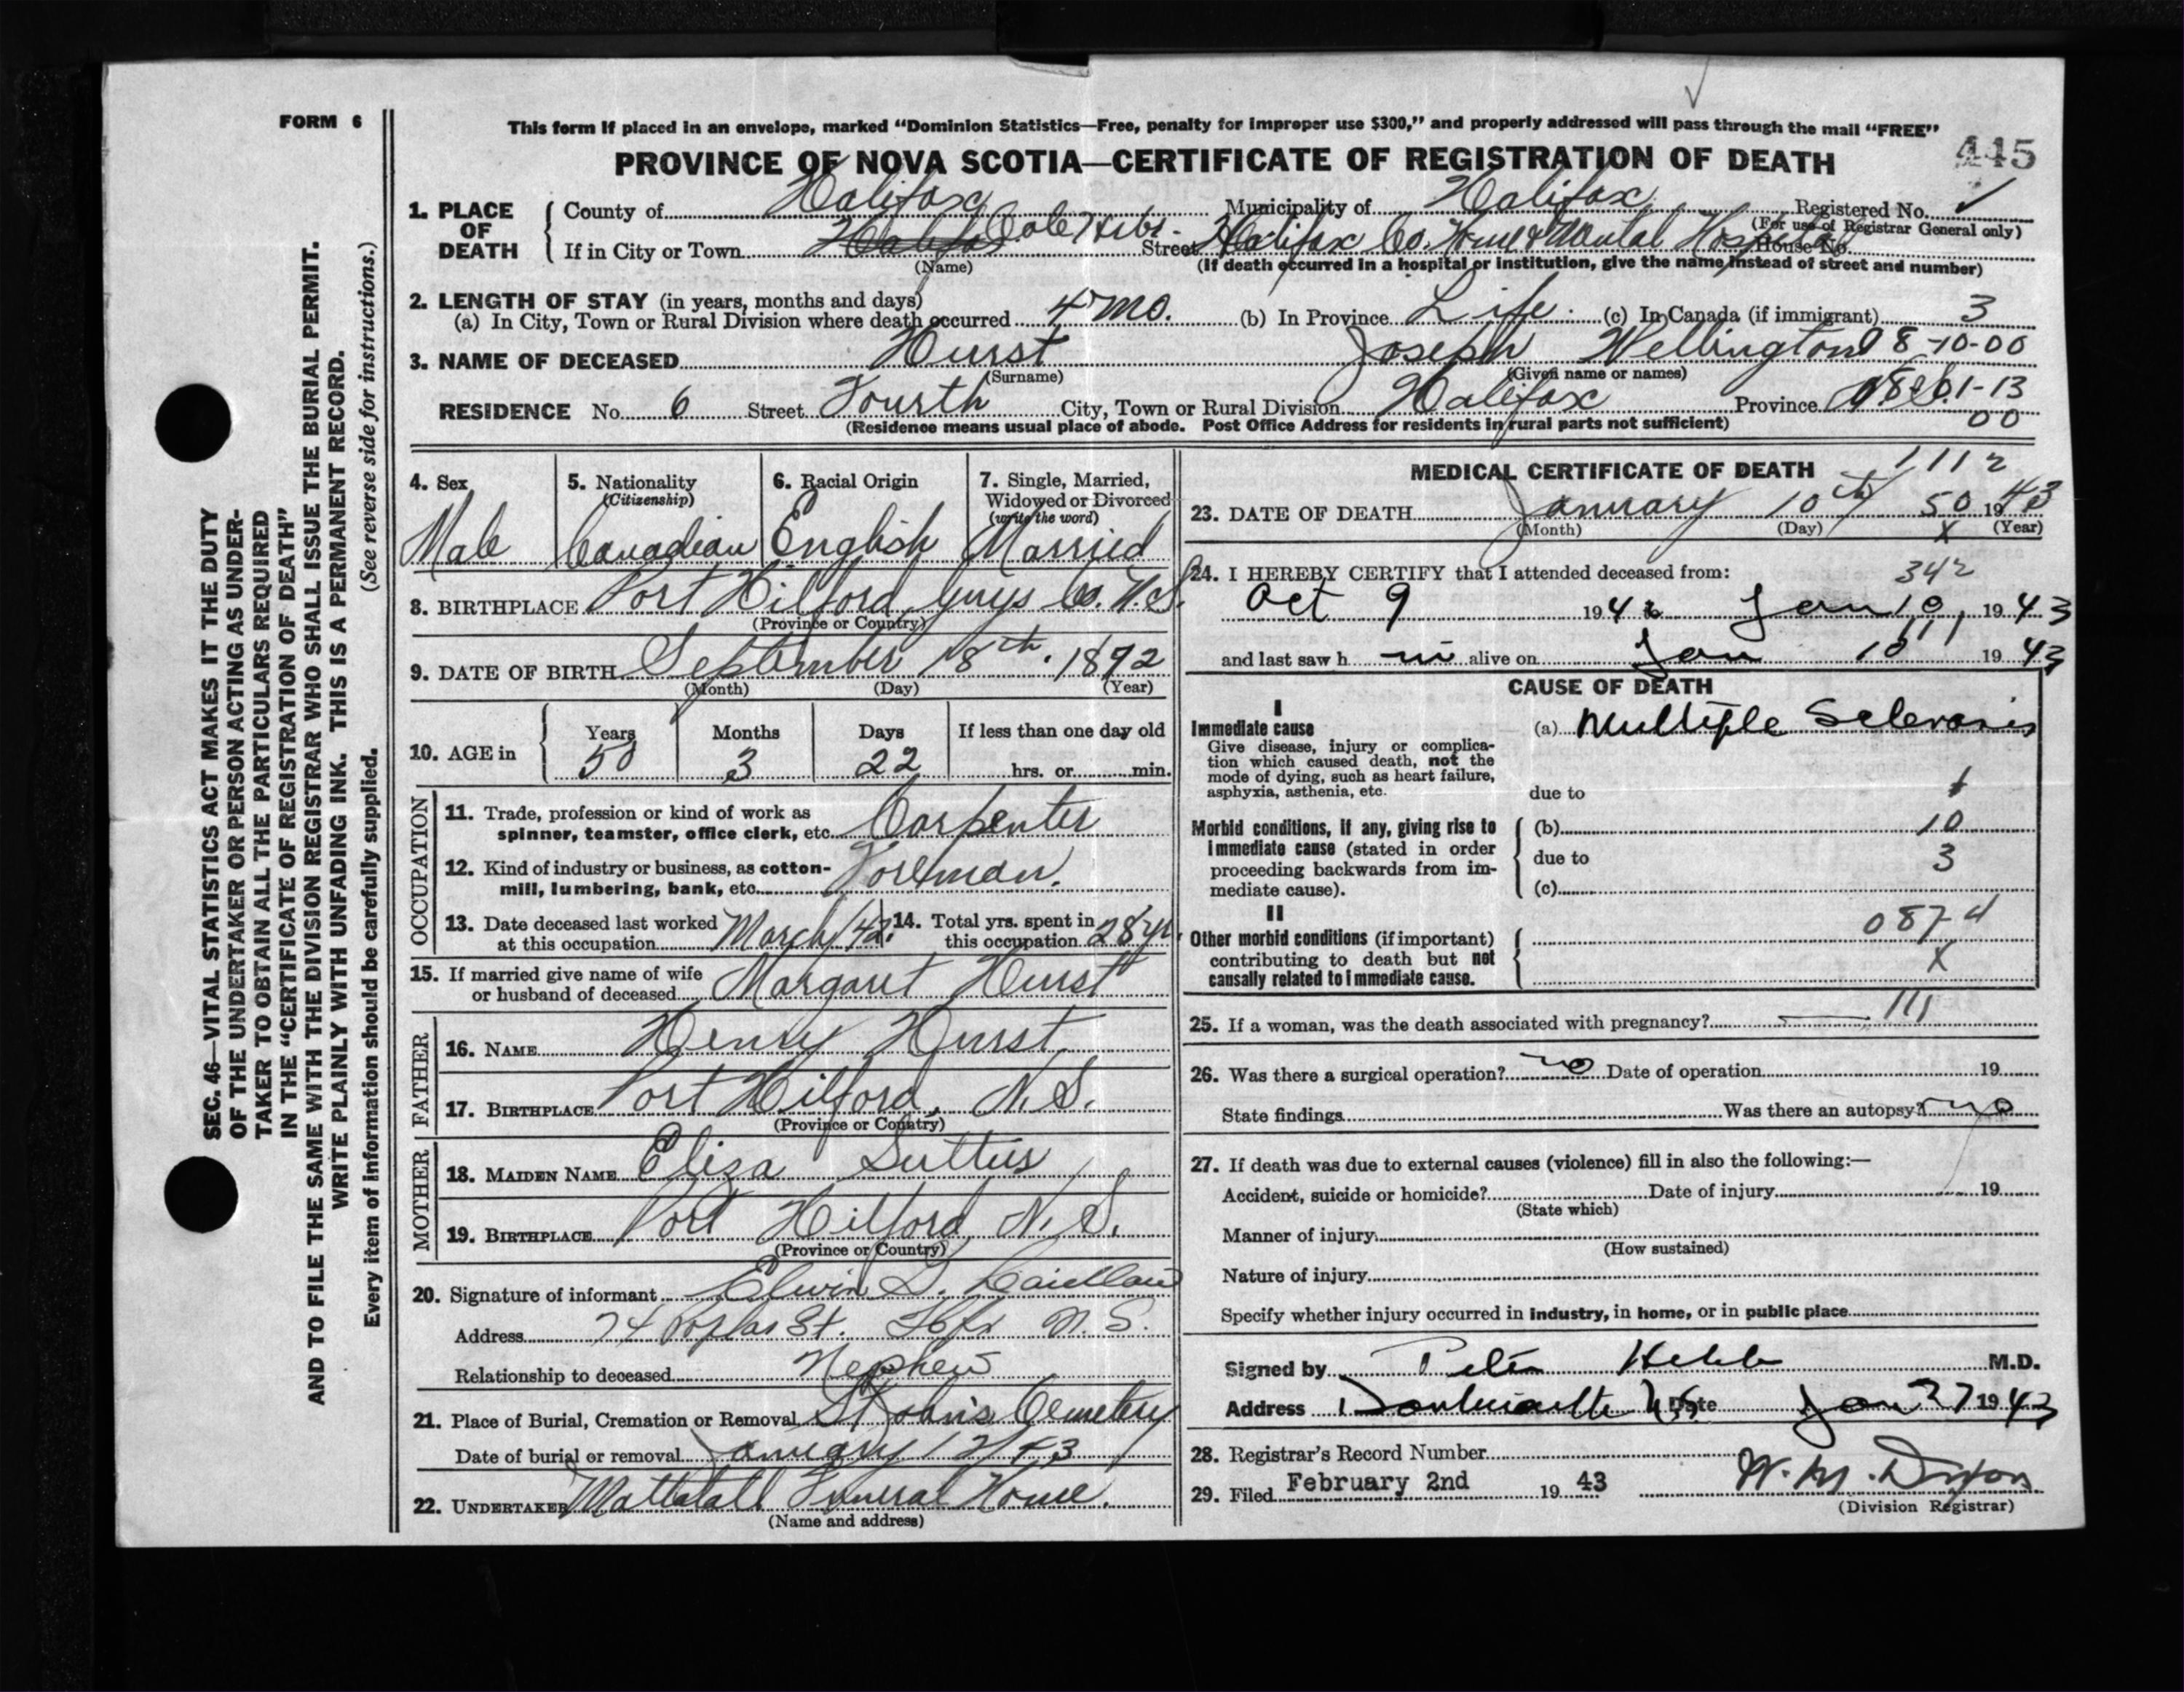 FORM 6
This form if placed in an envelope, marked "Dominion Statistics—Free, penalty for improper use $300," and properly addressed will pass through the mail "FREE"
PROVINCE OF NOVA SCOTIA—CERTIFICATE OF REGISTRATION OF DEATH
445
1. PLACE OF DEATH
County of Halifax Municipality of Halifax Registered No.
(For use of Registrar General only)
If in City or Town Halifax Cole Hrbr. Street Halifax Co. Home & Mental Hospital House No.
(Name) (If death occurred in a hospital or institution, give the name instead of street and number)
2. LENGTH OF STAY (in years, months and days)
(a) In City, Town or Rural Division where death occurred 4 mo. (b) In Province Life. (c) In Canada (if immigrant) 3
3. NAME OF DECEASED Hurst Joseph Wellington 8-10-00
(Surname) (Given name or names)
RESIDENCE No. 6 Street Fourth City, Town or Rural Division Halifax Province
00
(Residence means usual place of abode. Post Office Address for residents in rural parts not sufficient)
4. Sex
Male
5. Nationality
(Citizenship)
Canadian
6. Racial Origin
English
7. Single, Married, Widowed or Divorced
(write the word)
Married
8. BIRTHPLACE Port Hilford, Guys Co. N.S.
(Province or Country)
9. DATE OF BIRTH September 18th. 1892
(Month) (Day) (Year)
10. AGE in
Years 50
Months 3
Days 22
If less than one day old
hrs. or min.
OCCUPATION
11. Trade, profession or kind of work as spinner, teamster, office clerk, etc. Carpenter
12. Kind of industry or business, as cotton-mill, lumbering, bank, etc. Foreman.
13. Date deceased last worked at this occupation March/42.
14. Total yrs. spent in this occupation 28 yr.
15. If married give name of wife or husband of deceased Margaret Hurst
FATHER
16. NAME Henry Hurst
17. BIRTHPLACE Port Hilford, N.S.
(Province or Country)
MOTHER
18. MAIDEN NAME Eliza
19. BIRTHPLACE Port Hilford, N.S.
(Province or Country)
20. Signature of informant Elwin
Address 74 Poplar St. Hfx N.S.
Relationship to deceased Nephew
21. Place of Burial, Cremation or Removal St John's Cemetery
Date of burial or removal January 12/43
22. UNDERTAKER Mattatall Funeral Home.
(Name and address)
MEDICAL CERTIFICATE OF DEATH
1112
23. DATE OF DEATH January 10th 50 1943
(Month) (Day) X (Year)
24. I HEREBY CERTIFY that I attended deceased from: 342
Oct 9 1942 Jan 10, 1943
111
and last saw h im alive on Jan 10 1943
CAUSE OF DEATH
I
Immediate cause
Give disease, injury or complication which caused death, not the mode of dying, such as heart failure, asphyxia, asthenia, etc.
(a) Multiple Sclerosis
due to 1
Morbid conditions, if any, giving rise to immediate cause (stated in order proceeding backwards from immediate cause).
(b) 10
due to 3
(c)
II
Other morbid conditions (if important) contributing to death but not causally related to immediate cause.
087-d
X
25. If a woman, was the death associated with pregnancy? 111
26. Was there a surgical operation? no Date of operation 19
State findings Was there an autopsy? no
27. If death was due to external causes (violence) fill in also the following:—
Accident, suicide or homicide? Date of injury 19
(State which)
Manner of injury
(How sustained)
Nature of injury
Specify whether injury occurred in industry, in home, or in public place
Signed by Peter Hebb M.D.
Address Dartmouth NS Date Jan 27 1943
28. Registrar's Record Number
29. Filed February 2nd 19 43 W. M. Dixon
(Division Registrar)
SEC. 46—VITAL STATISTICS ACT MAKES IT THE DUTY
OF THE UNDERTAKER OR PERSON ACTING AS UNDER-
TAKER TO OBTAIN ALL THE PARTICULARS REQUIRED
IN THE "CERTIFICATE OF REGISTRATION OF DEATH"
AND TO FILE THE SAME WITH THE DIVISION REGISTRAR WHO SHALL ISSUE THE BURIAL PERMIT.
WRITE PLAINLY WITH UNFADING INK. THIS IS A PERMANENT RECORD.
Every item of information should be carefully supplied. (See reverse side for instructions.)